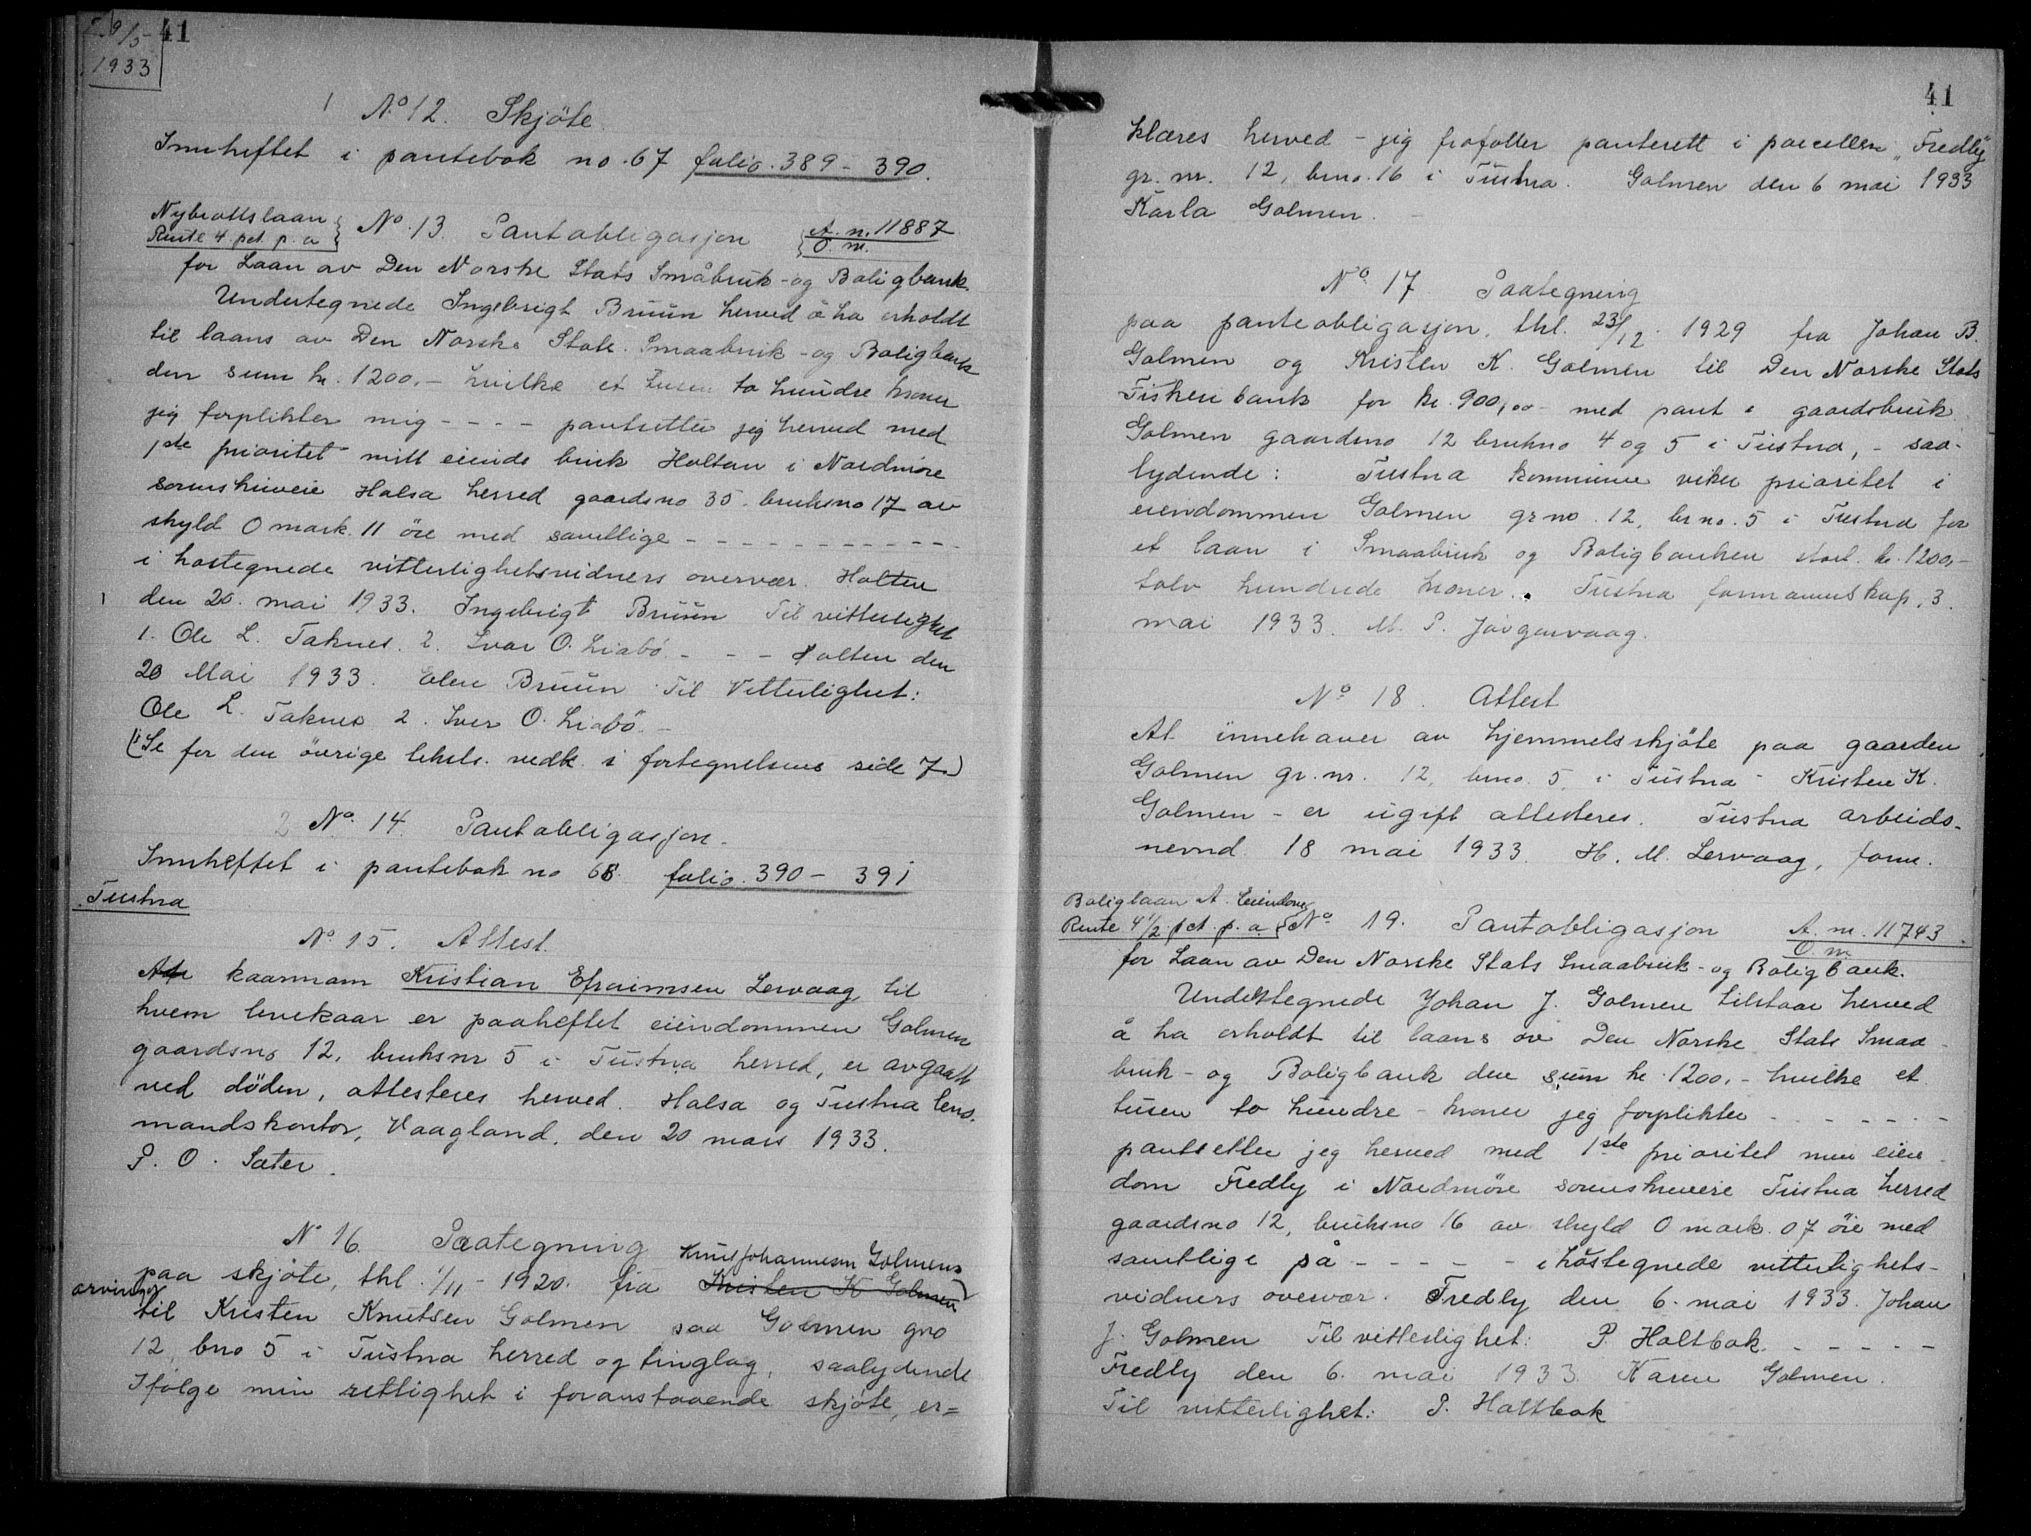 41
1933
1 No 12. Skjöte.
Innheftet i pantebok no. 67 folio. 389 - 390.
Nybrottslaan
Rente 4 pct. p. a
No. 13. Pantobligasjon
A. n. 11887
O. m.
for Laan av Den Norske Stats Småbruk- og Boligbank
Undertegnede Ingebrigt Bruun herved å ha erholdt
til laans av Den Norske Stats Smaabruk- og Boligbank
den sum kr. 1200.- hvilke et tusen to hundre kroner
jeg forplikter mig - - - - pantsetter jeg herved med
1ste prioritet mitt eiende bruk Holtan i Nordmöre
sorenskriveri Halsa herred gaardsno 35. bruksno 17 av
skyld 0 mark. 11 öre med samtlige - - - - - - - - - -
i hostegnede vitterlighetsvidners overvær. Holten
den 20. mai 1933. Ingebrigt Bruun Til vitterlighet
1. Ole L. Taknes. 2. Ivar O. Liabö. - - - Holten den
20 Mai 1933. Elen Bruun Til Vitterlighet:
Ole L. Taknes 2. Iver O. Liabö. -
(Se for den övrige tekst. vedk. i fortegnelsens side 7.)
2 No. 14. Pantobligasjon.
Innheftet i pantebok no 68. folio. 390 - 391
Tustna
No. 15. Attest.
At kaarmann Kristian Efraimsen Lervaag til
hvem levekaar er paaheftet eiendommen Golmen
gaardsno 12, bruksnr 5 i Tustna herred, er avgaatt
ved döden, attesteres herved. Halsa og Tustna lens.
mandskontor, Vaagland, den 20 mars 1933.
P. O. Sæter.
No 16. Paategning
Knut Johannesen Golmens
paa skjöte, thl. 1/11 - 1920. fra Kristen K Golmen
arvinger
til Kristen Knutsen Golmen paa Golmen gno
12, bno 5 i Tustna herred og tinglag, saalydende
Ifölge min rettighet i foranstaaende skjöte, er=
41
klæres herved - jeg frafaller panterett i parcellen "Fredly"
gr. nr. 12, bno. 16 i Tustna. Golmen den 6 mai 1933
Karla Golmen.
No. 17 Paategning
paa panteobligasjon, thl. 23/12. 1929 fra Johan B.
Golmen og Kristen K. Golmen til Den Norske Stats
Fiskeribank for kr. 900,00 - med pant i gaardsbruk
Golmen gaardsno 12 bruksno 4 og 5 i Tustna, - saa-
lydende: Tustna kommune viker prioritet i
eiendommen Golmen gr no. 12, br no. 5 i Tustna for
et laan i Smaabruk og Boligbanken stort. kr. 1200,-
tolv hundrede kroner. Tustna formannskap, 3.
mai 1933. M. P. Jörgenvaag.
No. 18. Attest
At innehaver av hjemmelsskjöte paa gaarden
Golmen gr. nr. 12, bno. 5, i Tustna - Kristen K.
Golmen - er ugift attesteres. Tustna arbeids-
nemnd 18 mai 1933. H. M. Lervaag, form.
Boliglaan A. Eiendom
Rente 4 1/2 pct. p. a.
No. 19. Pantobligasjon
A. nr. 11743.
O. m
for Laan av Den Norske Stats Smaabruk- og Boligbank.
Undertegnede Johan J. Golmen tilstaar herved
å ha erholdt til laans av Den Norske Stats Smaa-
bruk- og Boligbank den sum kr. 1200.- hvilke et
tusen to hundre - kroner jeg forplikter - - - - - -
pantsetter jeg herved med 1ste prioritet min eien-
dom Fredly i Nordmöre sorenskriveri Tustna herred
gaardsno 12, bruksno 16 av skyld 0 mark. 07 öre med
samtlige på - - - - - i höstegnede vitterlighets-
vidners overvær. Fredly den 6. mai 1933. Johan
J. Golmen Til vitterlighet: P. Holtbak. - - - - -
Fredly den 6. mai 1933. Karen Golmen.
Til vitterlighet: P. Holtbak